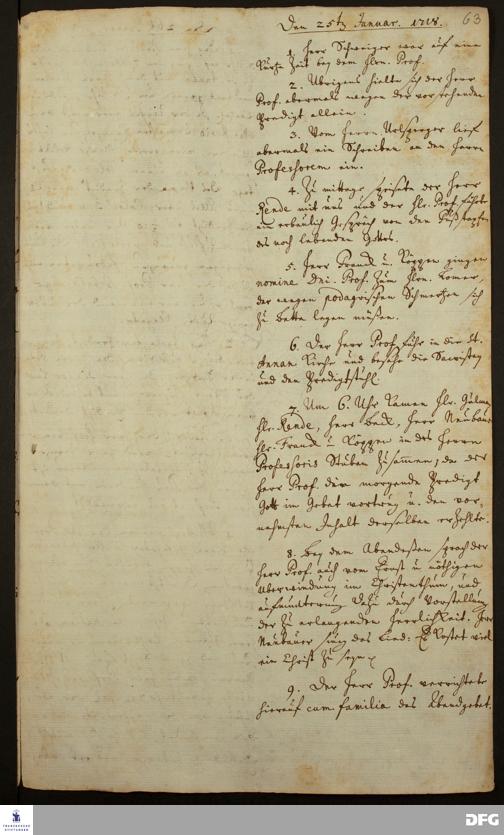 63
Den 25t Januar. 1718.
1. Herr Schweiger war auf eine
kurtze Zeit bey dem Hrn. Prof.
2. Übrigens hielte sich der Herr
Prof. abermals wegen der vorstehenden
Predigt allein.
3. Vom Herrn Urlsperger lief
abermals ein Schreiben an den Herrn
Professorem ein.
4. Zu mittage speisete der Herr
Rende mit uns und der Hr. Prof. führte
ein erbaulich Gespräch von den Fußstapfen
des noch lebenden Gottes.
5. Herr Franck u. Köppen gingen
nomine Dni. Prof. zum Hrn. Romer,
der wegen podagrischen Schmertzen sich
zu bette legen müßen.
6. Der Herr Prof. fuhr in die St.
Annen Kirche und besahe die Sacristey
und den Predigtstuhl.
7. Um 6. Uhr kamen Hr.
Hr. Rende, Herr Beck, Herr Neubauer
Hr. Franck u. Köppen in des Herrn
Professoris Stuben zusammen, da der
Herr Prof. die morgende Predigt
Gott im Gebet vortrug u. den vor-
nehmsten Inhalt derselben erzehlte.
8. Bey dem Abendeßen sprach der
Herr Prof. auch vom Ernst u. nöthigen
Überwindung im Christenthum, und
aufmunterung dazu durch Vorstellung
der zu erlangenden Herrlichkeit. Herr
Neubauer sung das Lied: Es kostet viel
ein Christ zu seyn
9. Der Herr Prof. verrichtete
hierauf cum familia das Abendgebet.
FRANCKESCHE STIFTUNGEN
DFG